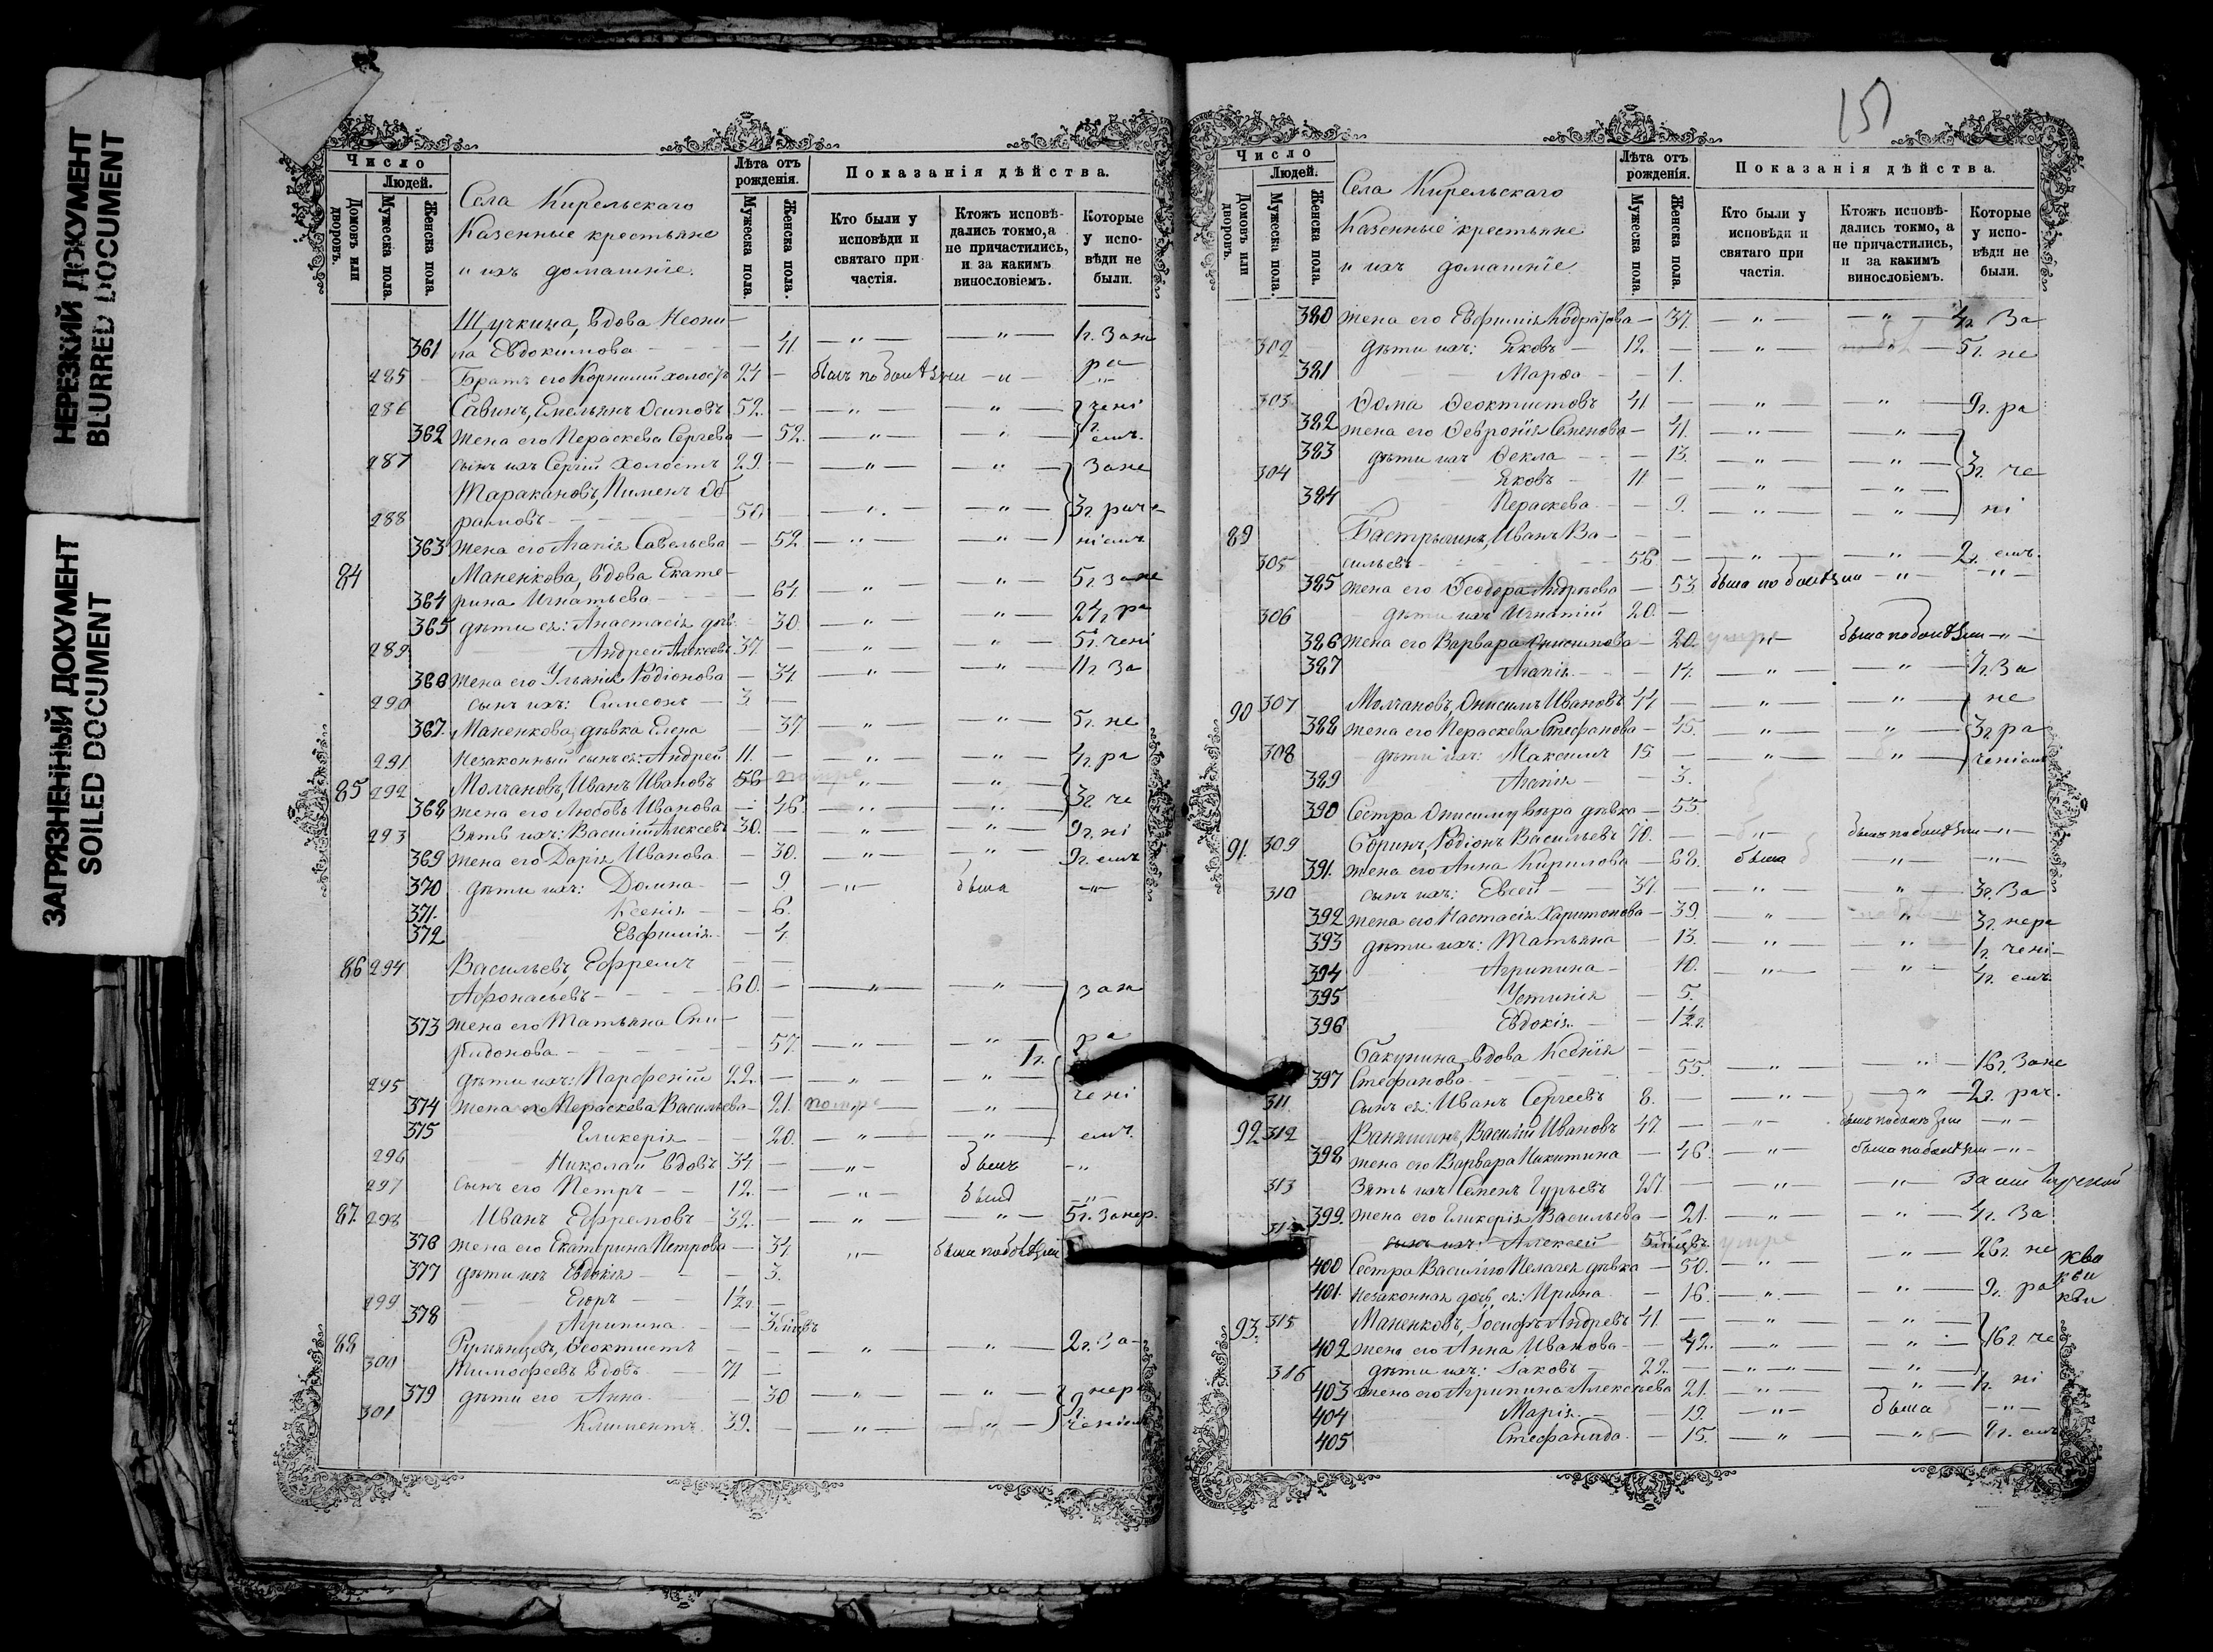 НЕРЕЗКИЙ ДОКУМЕНТ
BLURRED DOCUMENT
ЗАГРЯЗНЕННЫЙ ДОКУМЕНТ
SOILED DOCUMENT
Число
Людей.
Домовъ или дворовъ.
Мужеска пола.
Женска пола.
Села Кирельскаго
Казенные крестьяне
и ихъ домашніе.
Лѣта отъ рожденія.
Мужеска пола.
Женска пола.
Показанія дѣйства.
Кто были у исповѣди и святаго при частія.
Ктожъ исповѣ- дались токмо, а не причастились, и за какимъ винословіемъ.
Которые у испо- вѣди не были.
Щучкина, вдова Неони-
361 ла Евдокимова — 41. — " — — " — 1г. Зане
285 Братъ его Корнилій холостъ 24 — былъ по болѣзни — " — ра
286 Савинъ, Емельянъ Осиповъ 52. — — " — — " — чені
362 жена его Пераскева Сергѣева — 52. — " — — " — емъ.
287 сынъ ихъ Сергій холостъ 29. — — " — — " — Зане
Таракановъ, Пименъ Об
288 рамовъ 50. — — " — — " — 3г. раче
363 жена его Агапія Савельева — 52 — " — — " — ніемъ
84 Маненкова, вдова Екате-
364 рина Игнатьева — 64. — " — — " — 5г. зане
365 дѣти ея: Анастасія дѣв. 30. — " — — " — 24г. ра
289 Андрей Алексѣевъ 37. — — " — — " — 5г. чені
366 жена его Ульянія Родіонова — 34 — " — — " — 11г. За
290 сынъ ихъ: Симеонъ — 3 —
367. Маненкова дѣвка Елена — 37 — " — — " — 5г. не
291 незаконный сынъ ея: Андрей 11. — — " — — " — 4г. ра
85 292 Молчановъ, Иванъ Ивановъ 56 — " — — " —
368 жена его Любовь Иванова — 46. — " — — " — 3г. че
293 Зять ихъ: Василій Алексѣевъ 30. — — " — — " — 9г. ні
369 жена его Дарія Иванова — 30. — " — — " — 9г. емъ
370 дѣти ихъ: Домна — 9 — " — была — " —
371. Ксенія — 6.
372 Евфимія — 4.
86 294 Васильевъ, Ефремъ
Афонасьевъ 60. — — " — — " — зане
373 жена его Татьяна Спи-
ридонова — 57. — " — — " — ра
1г.
295 дѣти ихъ: Парфеній 22. — — " — — " —
374 жена его Пераскева Васильева — 21. помре — " — чені
375 Гликерія — 20. — " — — " — емъ.
296 Николай вдовъ 34 — — " — былъ — " —
297 сынъ его Петръ 12. — — " — былъ — " —
87. 298 Иванъ Ефремовъ 32. — — " — — " — 5г. Занер.
376 жена его Екатерина Петрова — 34. — " — была по болѣзни
377 дѣти ихъ Евдокія — 3.
299 Егоръ 1½г. —
378 Агрипина
88 Румянцевъ, Феоктистъ — " — — " — 2г. За-
300 Тимофеевъ вдовъ 71 —
379 дѣти его Анна — 30 — " — — " — нера
301 Климентъ 39. — — " — — " — 9г. ченіемъ
151
Число
Людей.
Домовъ или дворовъ.
Мужеска пола.
Женска пола.
Села Кирельскаго
Казенные крестьяне
и ихъ домашніе.
Лѣта отъ рожденія.
Мужеска пола.
Женска пола.
Показанія дѣйства.
Кто были у исповѣди и святаго при частія.
Ктожъ исповѣ- дались токмо, а не причастились, и за какимъ винословіемъ.
Которые у испо- вѣди не были.
380 жена его Евфимія Кодратова — 37. — " — — " — 4г. За
302 дѣти ихъ: Яковъ 12. — — " — 5г. не
381 Марѳа — 1.
303 Ѳома Ѳеоктистовъ 41 — — " — — " — 9г. ра
382 жена его Февронія Семенова — 41. — " — — " —
383 дѣти ихъ Ѳекла — 13. — " — — " —
304 Яковъ 11 — — " — — " — 3г. че
384 Пераскева — 9. — " — — " — ні
89 Бастрыгинъ, Иванъ Ва-
305 сильевъ 56 — — " — — " — 2г. емъ.
385 жена его Ѳеодора Андреева — 53. была по болѣзни — " — — " —
306 дѣти ихъ Игнатій 20. —
386 жена его Варвара Онисимова — 20. умре была по болѣзни — " —
387 Агапія — 14. — " — — " — 7г. За
90 307 Молчановъ, Онисимъ Ивановъ 44 — — " — — " — не
388 жена его Пераскева Стефанова — 45. — " — — " — 3г. ра
308 дѣти ихъ: Максимъ 15 — — " — — " — ченіемъ
389 Агапія — 3.
390 Сестра Онисиму Вѣра дѣвка — 55.
91. 309 Сбринъ, Родіонъ Васильевъ 70. — — " — былъ по болѣзни — " —
391. жена его Анна Кирилова — 68. была " — " —
310 сынъ ихъ: Евсей 37. — — " — — " — 3г. За
392 жена его Настасія Харитонова — 39. " — " — 3г. нера
393 дѣти ихъ: Татьяна — 13. — " — — " — 1г. чені-
394 Агрипина — 10. — " — — " — 4г. емъ
395 Устинія — 5.
396 Евдокія — 1½г.
Бакунина, вдова Ксенія
397 Стефанова — 55. — " — — " — 16г. Зане
311. сынъ ея: Иванъ Сергеевъ 8. — — " — — " — 2г. рач.
92 312 Ванягинъ, Василій Ивановъ 47. — — " — былъ по болѣзни — " —
398 жена его Варвара Никитина — 46. — " — была по болѣзни — " —
313 Зять ихъ Семенъ Гурьевъ — — " — — " —
399. жена его Гликерія Васильева — 21. — " — — " — 4г. За
сынъ ихъ: Алексей умре
400 Сестра Василію Пелагея дѣвка — 50. — " — — " — 26г. не
401. незаконная дочь ея: Ирина — 16. — " — — " — 9г. ра
93. 315 Маненковъ, Іосифъ Андреевъ 41. — — " — — " —
402 жена его Анна Иванова — 42. — " — — " — 16г. че
316 дѣти ихъ: Іаковъ 22. — — " — — " —
403 жена его Агрипина Алексѣева 21. — " — — " — 1г. ні
404 Марія — 19. — " — была — " —
405 Стефанида — 15. — " — — " — 9г. емъ